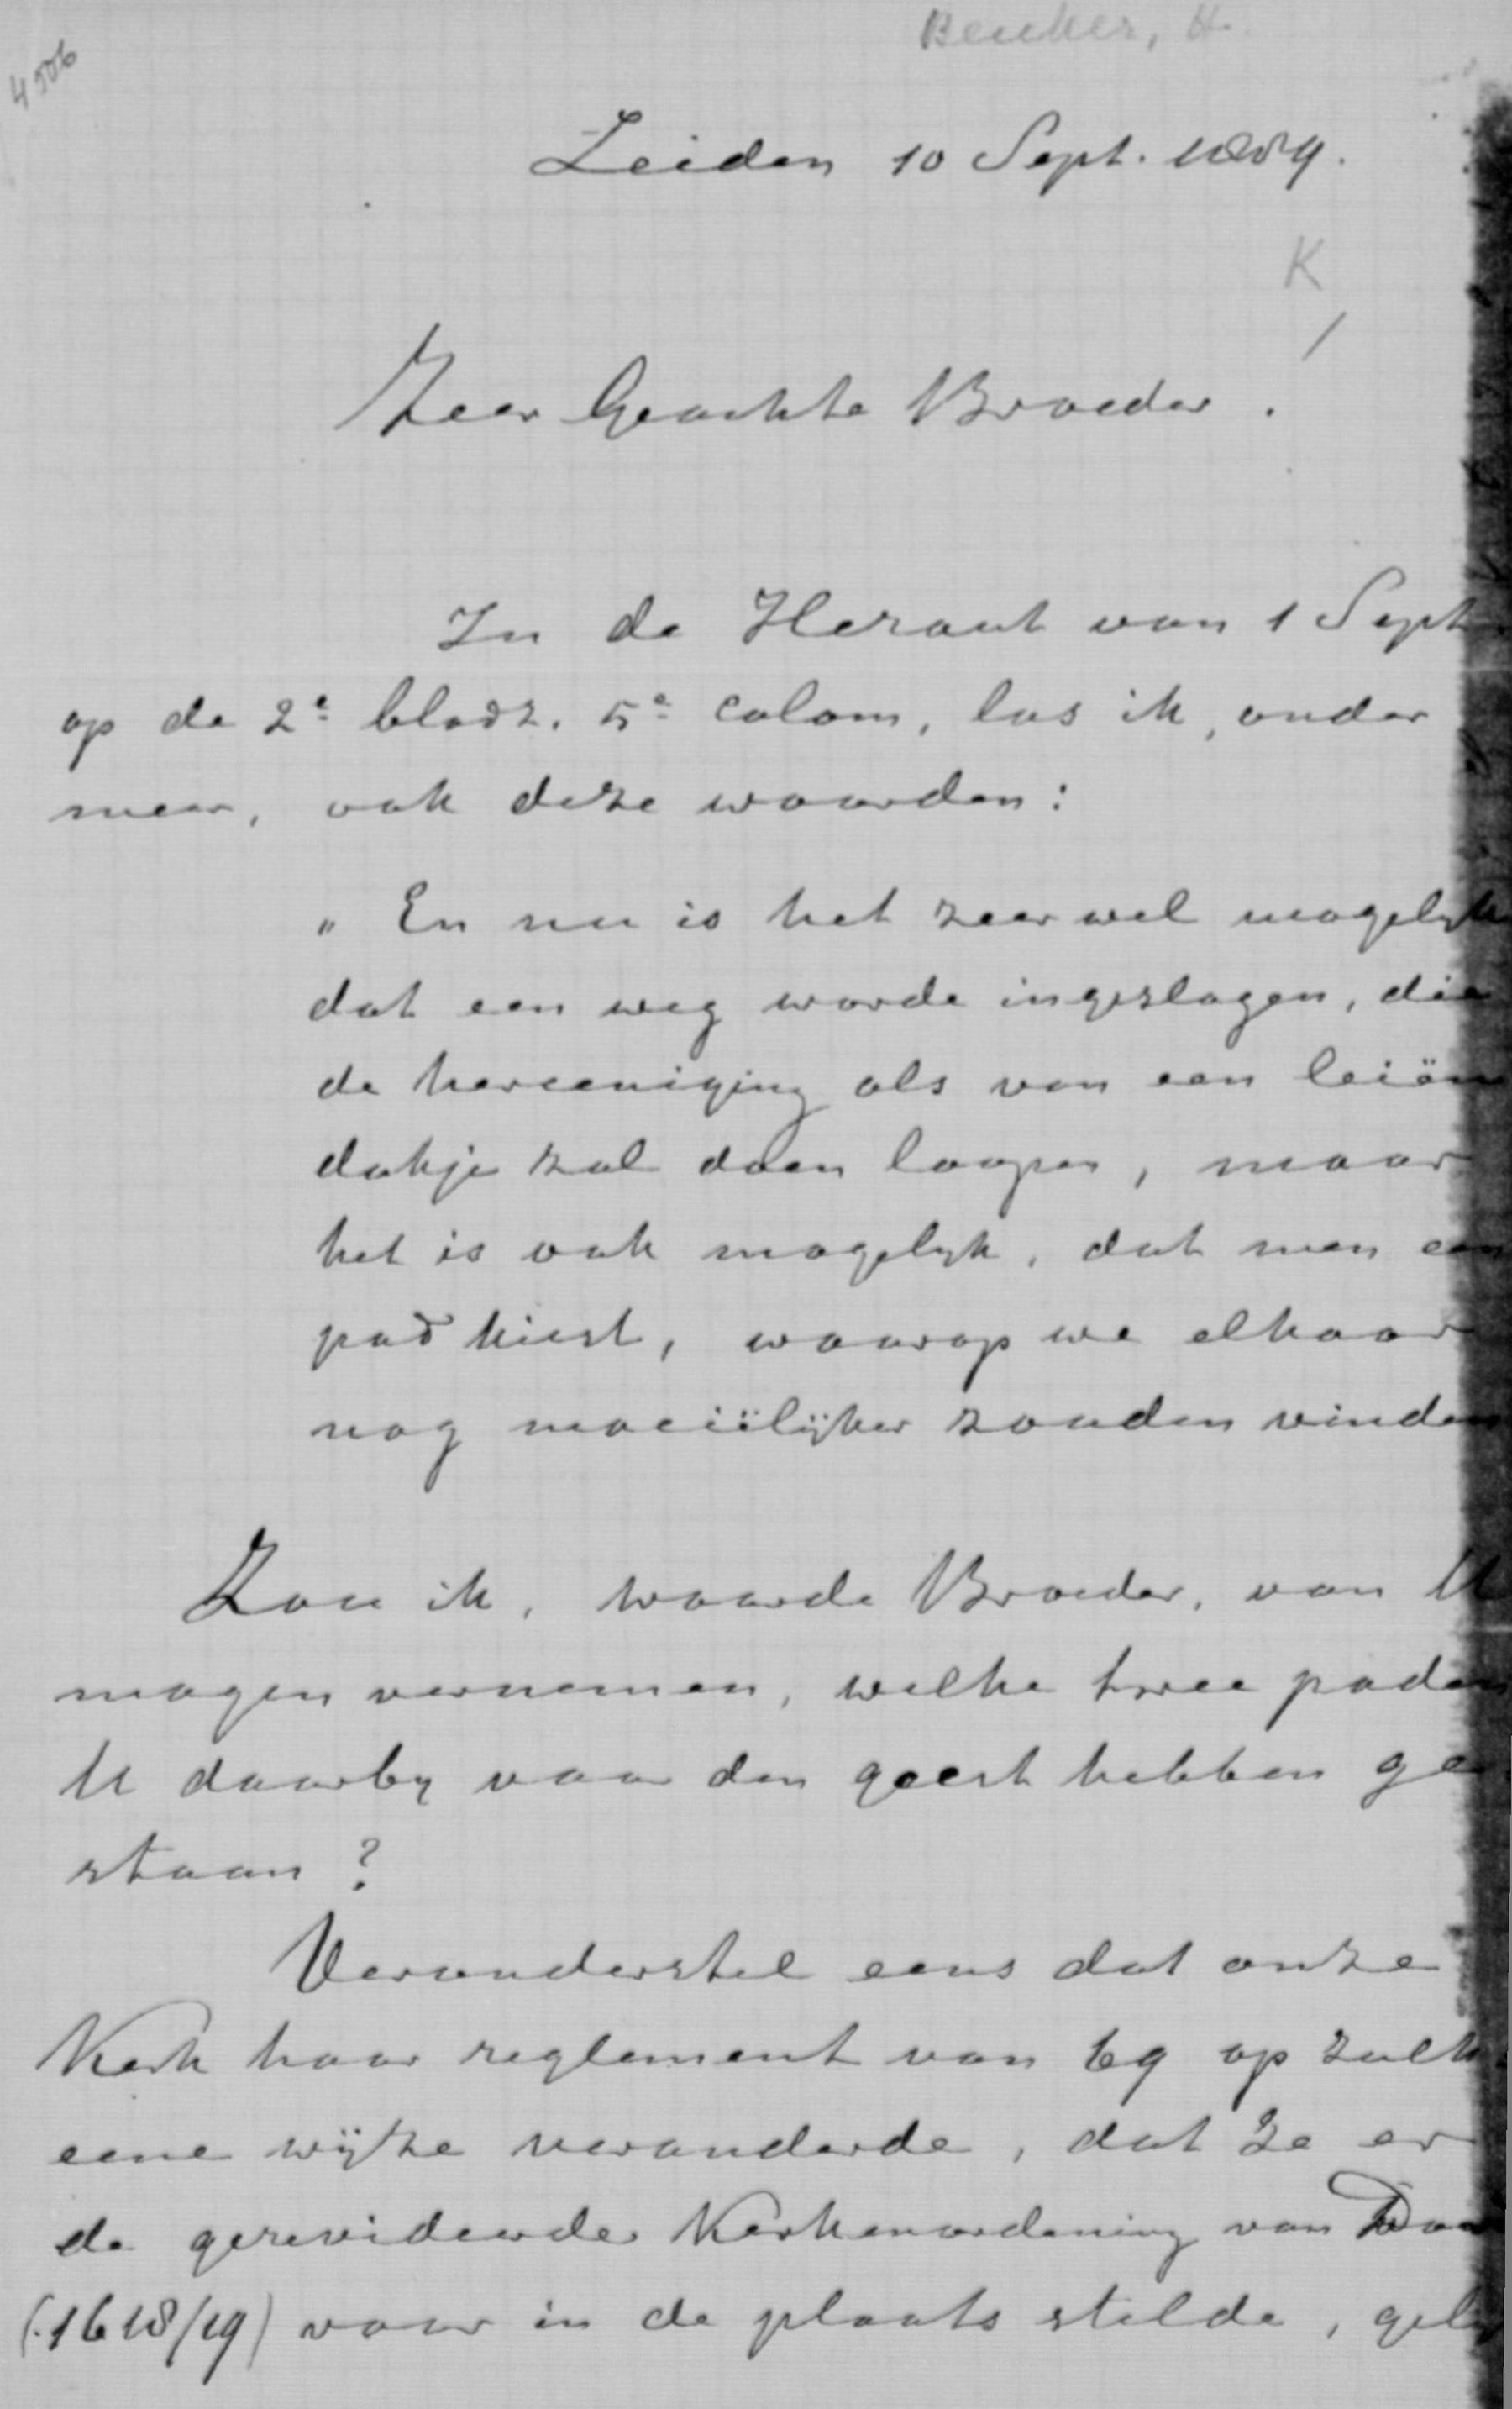 Beuker, H.
4506
Leiden 10 Sept. 1889.
K
Zeer Geachte Broeder!
In de Heraut van 1 Sept
op de 2e bladz. 5e colom, las ik, onder
meer, ook deze woorden:
„En nu is het zeer wel mogelyk
dat een weg worde ingeslagen, die
de hereeniging als van een leiën
dakje zal doen loopen, maar
het is ook mogelyk, dat men een
pad kiest, waarop we elkaar
nog moeiëlijker zouden vinden
Zou ik, waarde Broeder, van U
mogen vernemen, welke twee paden
U daarby voor den geest hebben ge
staan?
Veronderstel eens dat onze
Kerk haar reglement van 69 op zulk
eene wijze veranderde, dat ze er
de gerevideerde Kerkenordening van Dor
(1618/19) voor in de plaats stelde, gely